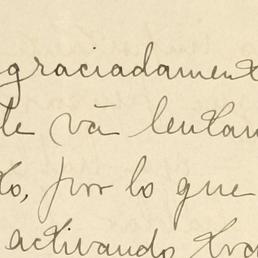 graciadament
te vá lentam
do, por lo que
activando tra